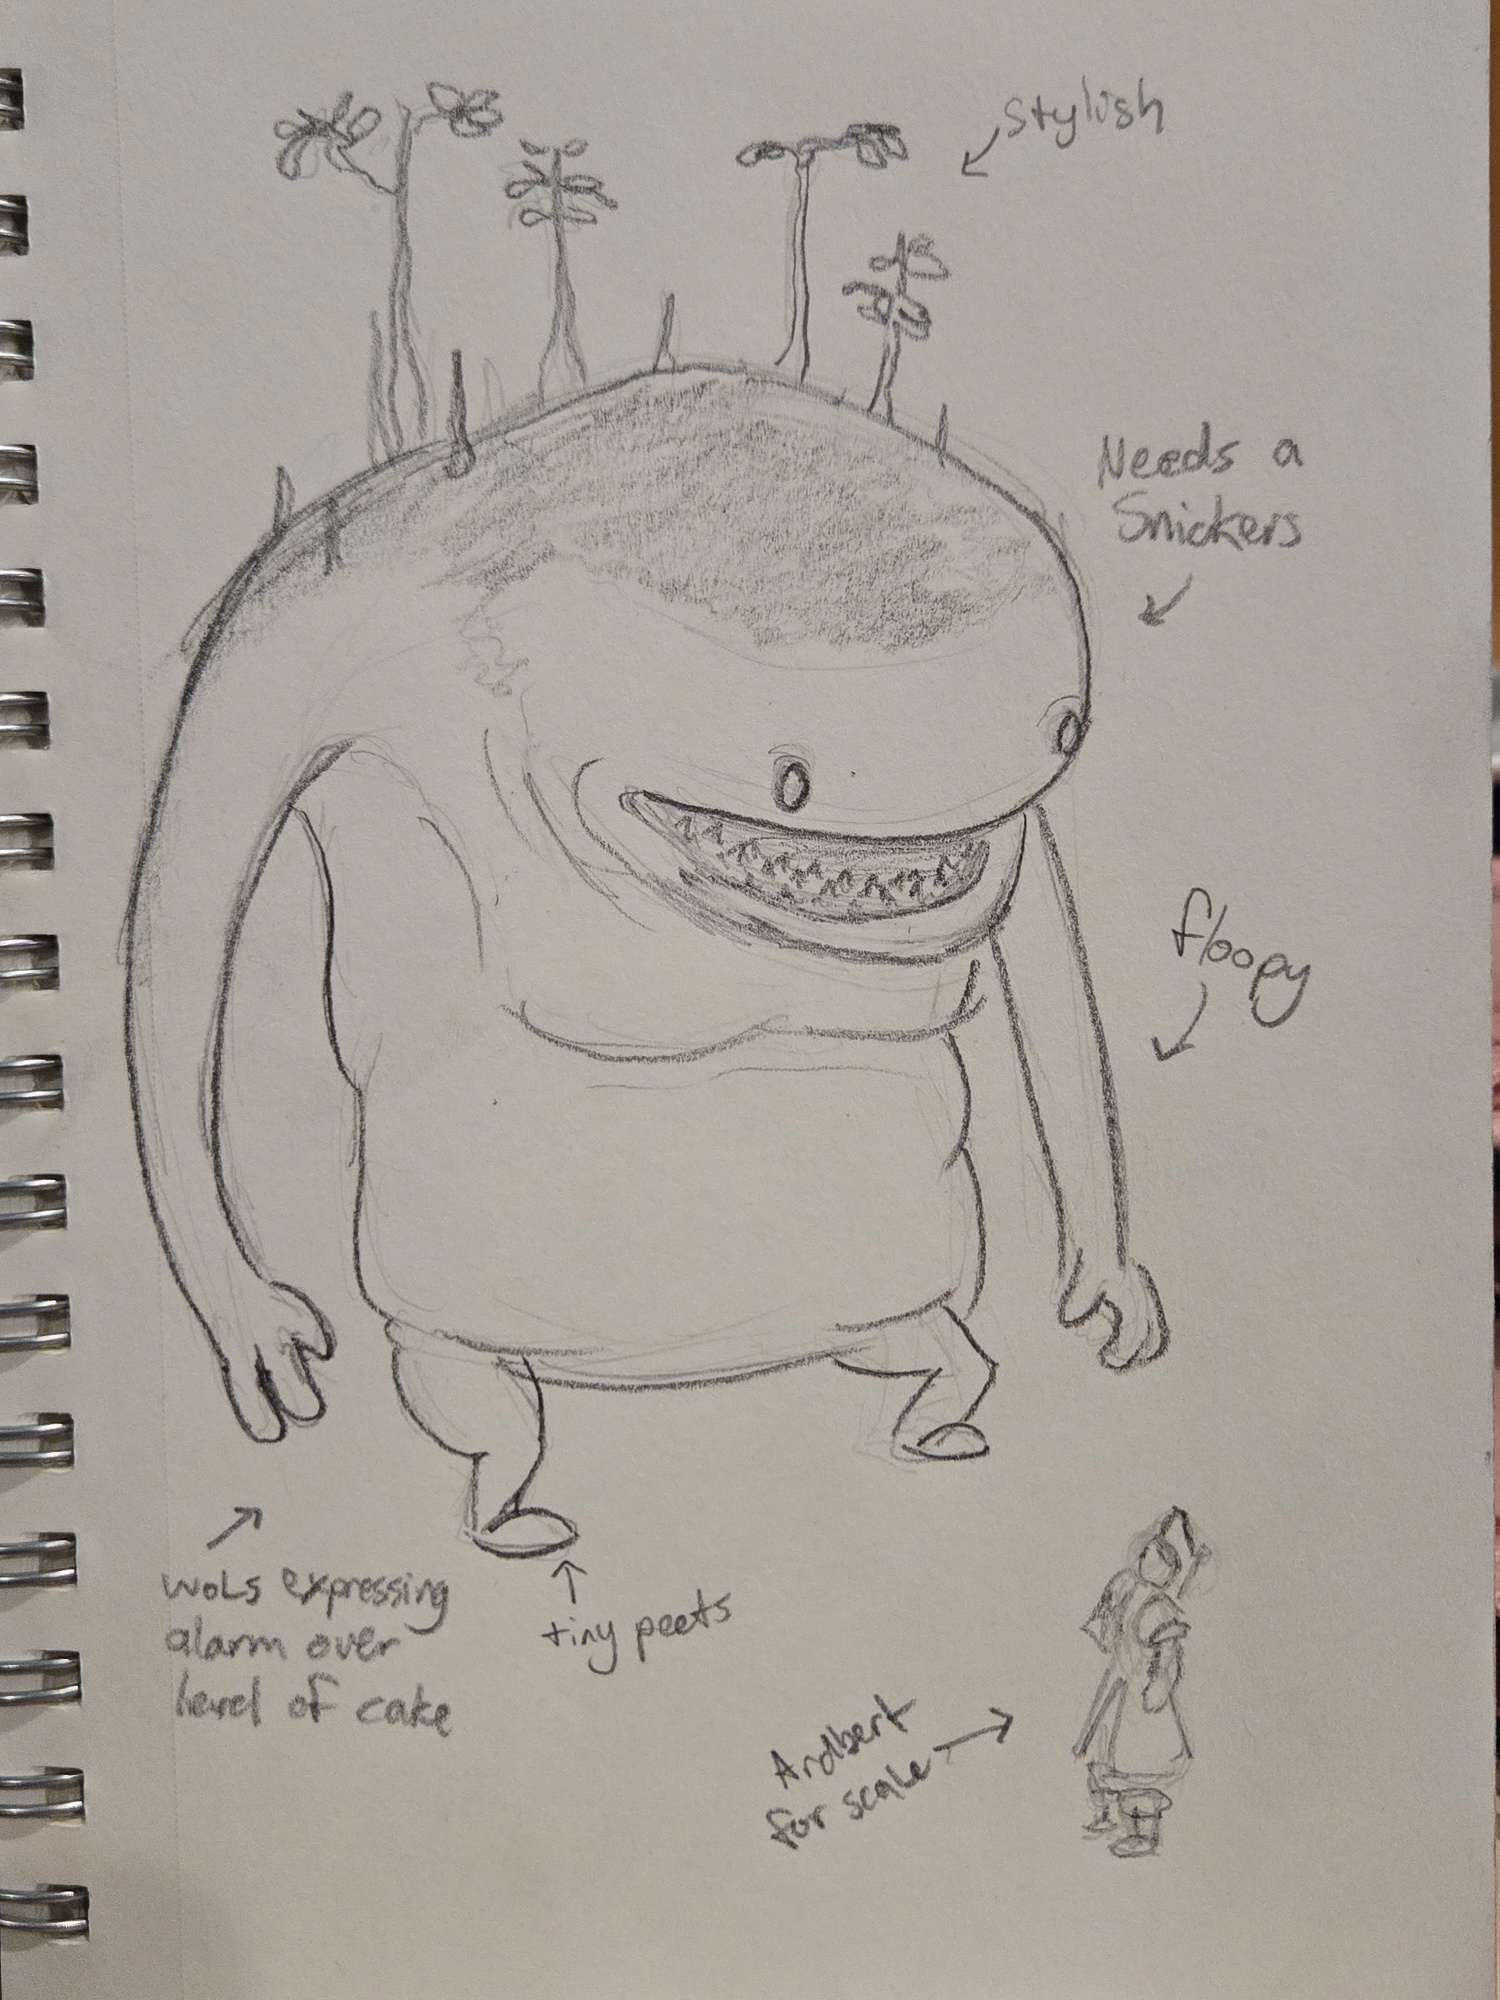 Stylish
Needs a
Snickers
floopy
WoLs expressing
alarm over
level of cake
tiny peets
Ardbert
for scale